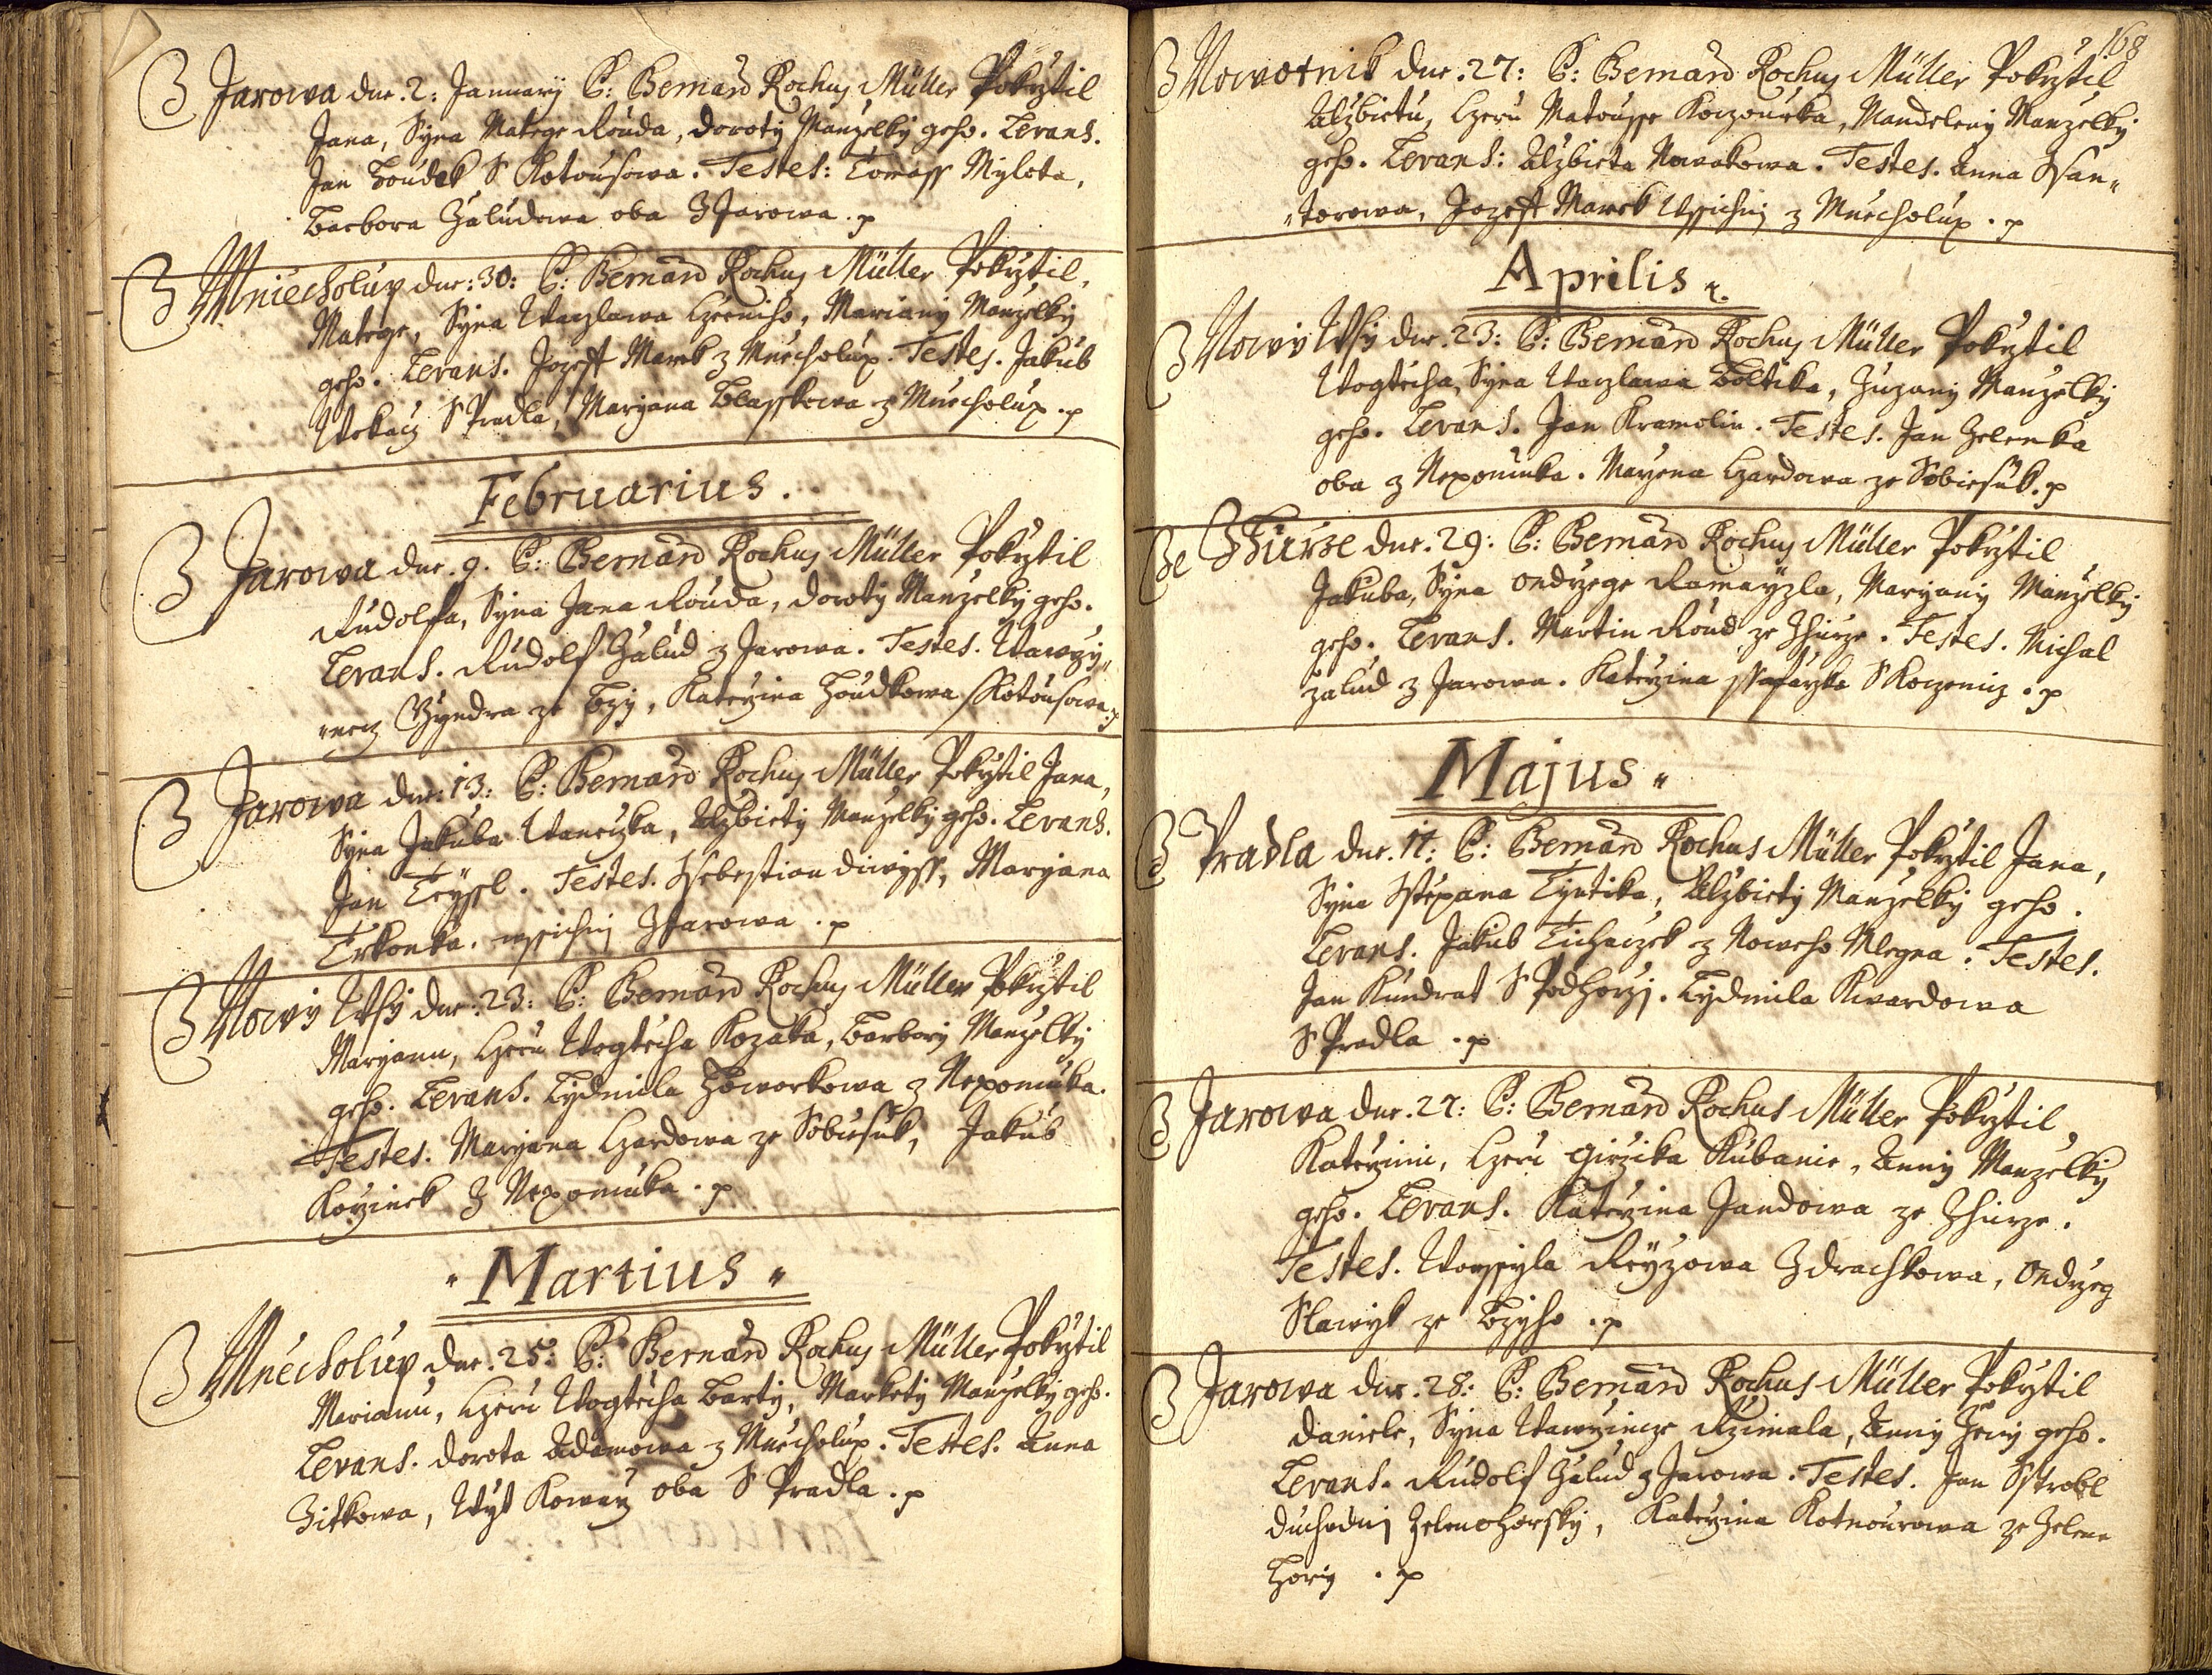 Z Jarowa dne. 2: Januarÿ P: Bernard Rochus Müller Pokrztil
Jana, Syna Matege Rouda, Doroty Manzelky geho. Levans.
Jan Houdek S Kotousowa. Testes: Tomass Mylota,
Barbora Žaludowa oba Z Jarowa. p
Z Mniecholup dne: 30: P: Bernard Rochus Müller Pokrztil,
Matege, Syna Waczlawa Czerniho, Mariany Manzelky
geho. Levans. Jozeff Marek z Mniecholup. Testes. Jakub
Wokacz S Pradla, Maryana Blasskowa z Mniecholup. p
Februarius.
Z Jarowa dne. 9. P: Bernard Rochus Müller Pokrztil
Rudolfa, Syna Jana Rouda, Doroty Manzelky geho.
Levans. Rudolf Žalud z Jarowa. Testes. Wawrzy„
„necz Gyndra ze Bzy, Katerzina Houdkowa S Kotousowa. p
Z Jarowa dne: 13: P: Bernard Rochus Müller Pokrztil Jana,
Syna Jakuba Waneczka, Alzbiety Manzelky geho. Levans.
Jan Teyssl. Testes. Ssebestian Diwyss, Maryana
Trkonka. wssichni Z Jarowa. p
Z Nowy Wsy dne: 23: P: Bernard Rochus Müller Pokrztil
Maryanu, Czeru Wogtecha Kozaka, Barbory Manzelky
geho. Levans. Lydmila Howorkowa z Nepomuka.
Testes. Maryana Czardowa ze Sobiesuk, Jakub
Korzinek Z Nepomuka. p
„ Martius „
Z Mnecholup dne. 25: P: Bernard Rochus Müller Pokrztil
Marianu, Czeru Wogtecha Barty, Markety Manzelky geho.
Levans. Dorota Adamowa z Mniecholup. Testes. Anna
Zitkowa, Wyt Kowarz oba S Pradla. p
168
Z Nowotnik dne. 27: P: Bernard Rochus Müller Pokrztil
Alzbietu, Czeru Matousse Koczourka, Mandeleny Manzelky
geho. Levans: Alzbieta Nowakowa. Testes. Anna Ssan„
„torowa, Jozeff Marek Wssichni z Mniecholup. p
Aprilis
Z Nowy Wsy dne. 23: P: Bernard Rochus Müller Pokrztil
Wogtecha, Syna Waczlawa Boltika, Zuzany Manzelky
geho. Levans. Jan Kramolin. Testes. Jan Zelenka
oba z Nepomuka. Maryana Czardowa ze Sobiesuk. p
Ze Zhurze dne. 29: P: Bernard Rochus Müller Pokrztil
Jakuba, Syna Ondrzege Ramayzla, Maryany Manzelky
geho. Levans. Martin Roud ze Zhurze. Testes. Michal
Žalud z Jarowa. Katerzina Ssafarzka S Kozemicz. p
Majus „
Z Pradla dne. 17: P: Bernard Rochus Müller Pokrztil Jana,
Syna Sstepana Tyntika, Alzbiety Manzelky geho.
Levans. Jakub Tichaczek z Noweho Mlegna. Testes.
Jan Kundrat S Podhorzj. Lydmila Kwardowa
S Pradla. p
Z Jarowa dne. 27: P: Bernard Rochus Müller Pokrztil,
Katerzinu, Czeru Girzika Kubanie, Anny Manzelky
geho. Levans. Katerzina Jandowa ze Zhurze.
Testes. Worssyla Reyzowa Z Drachkowa, Ondrzeg
Slawyk ze Bzyho. p
Z Jarowa dne. 28: P: Bernard Rochus Müller Pokrztil
Daniele, Syna Wawrzince Rzimala, Anny Ženy geho.
Levans. Rudolf Žalud z Jarowa. Testes. Jan Sstrobl
Duchodnj Zelenohorsky, Katerzina Kotnourowa ze Zelene
Hory. p